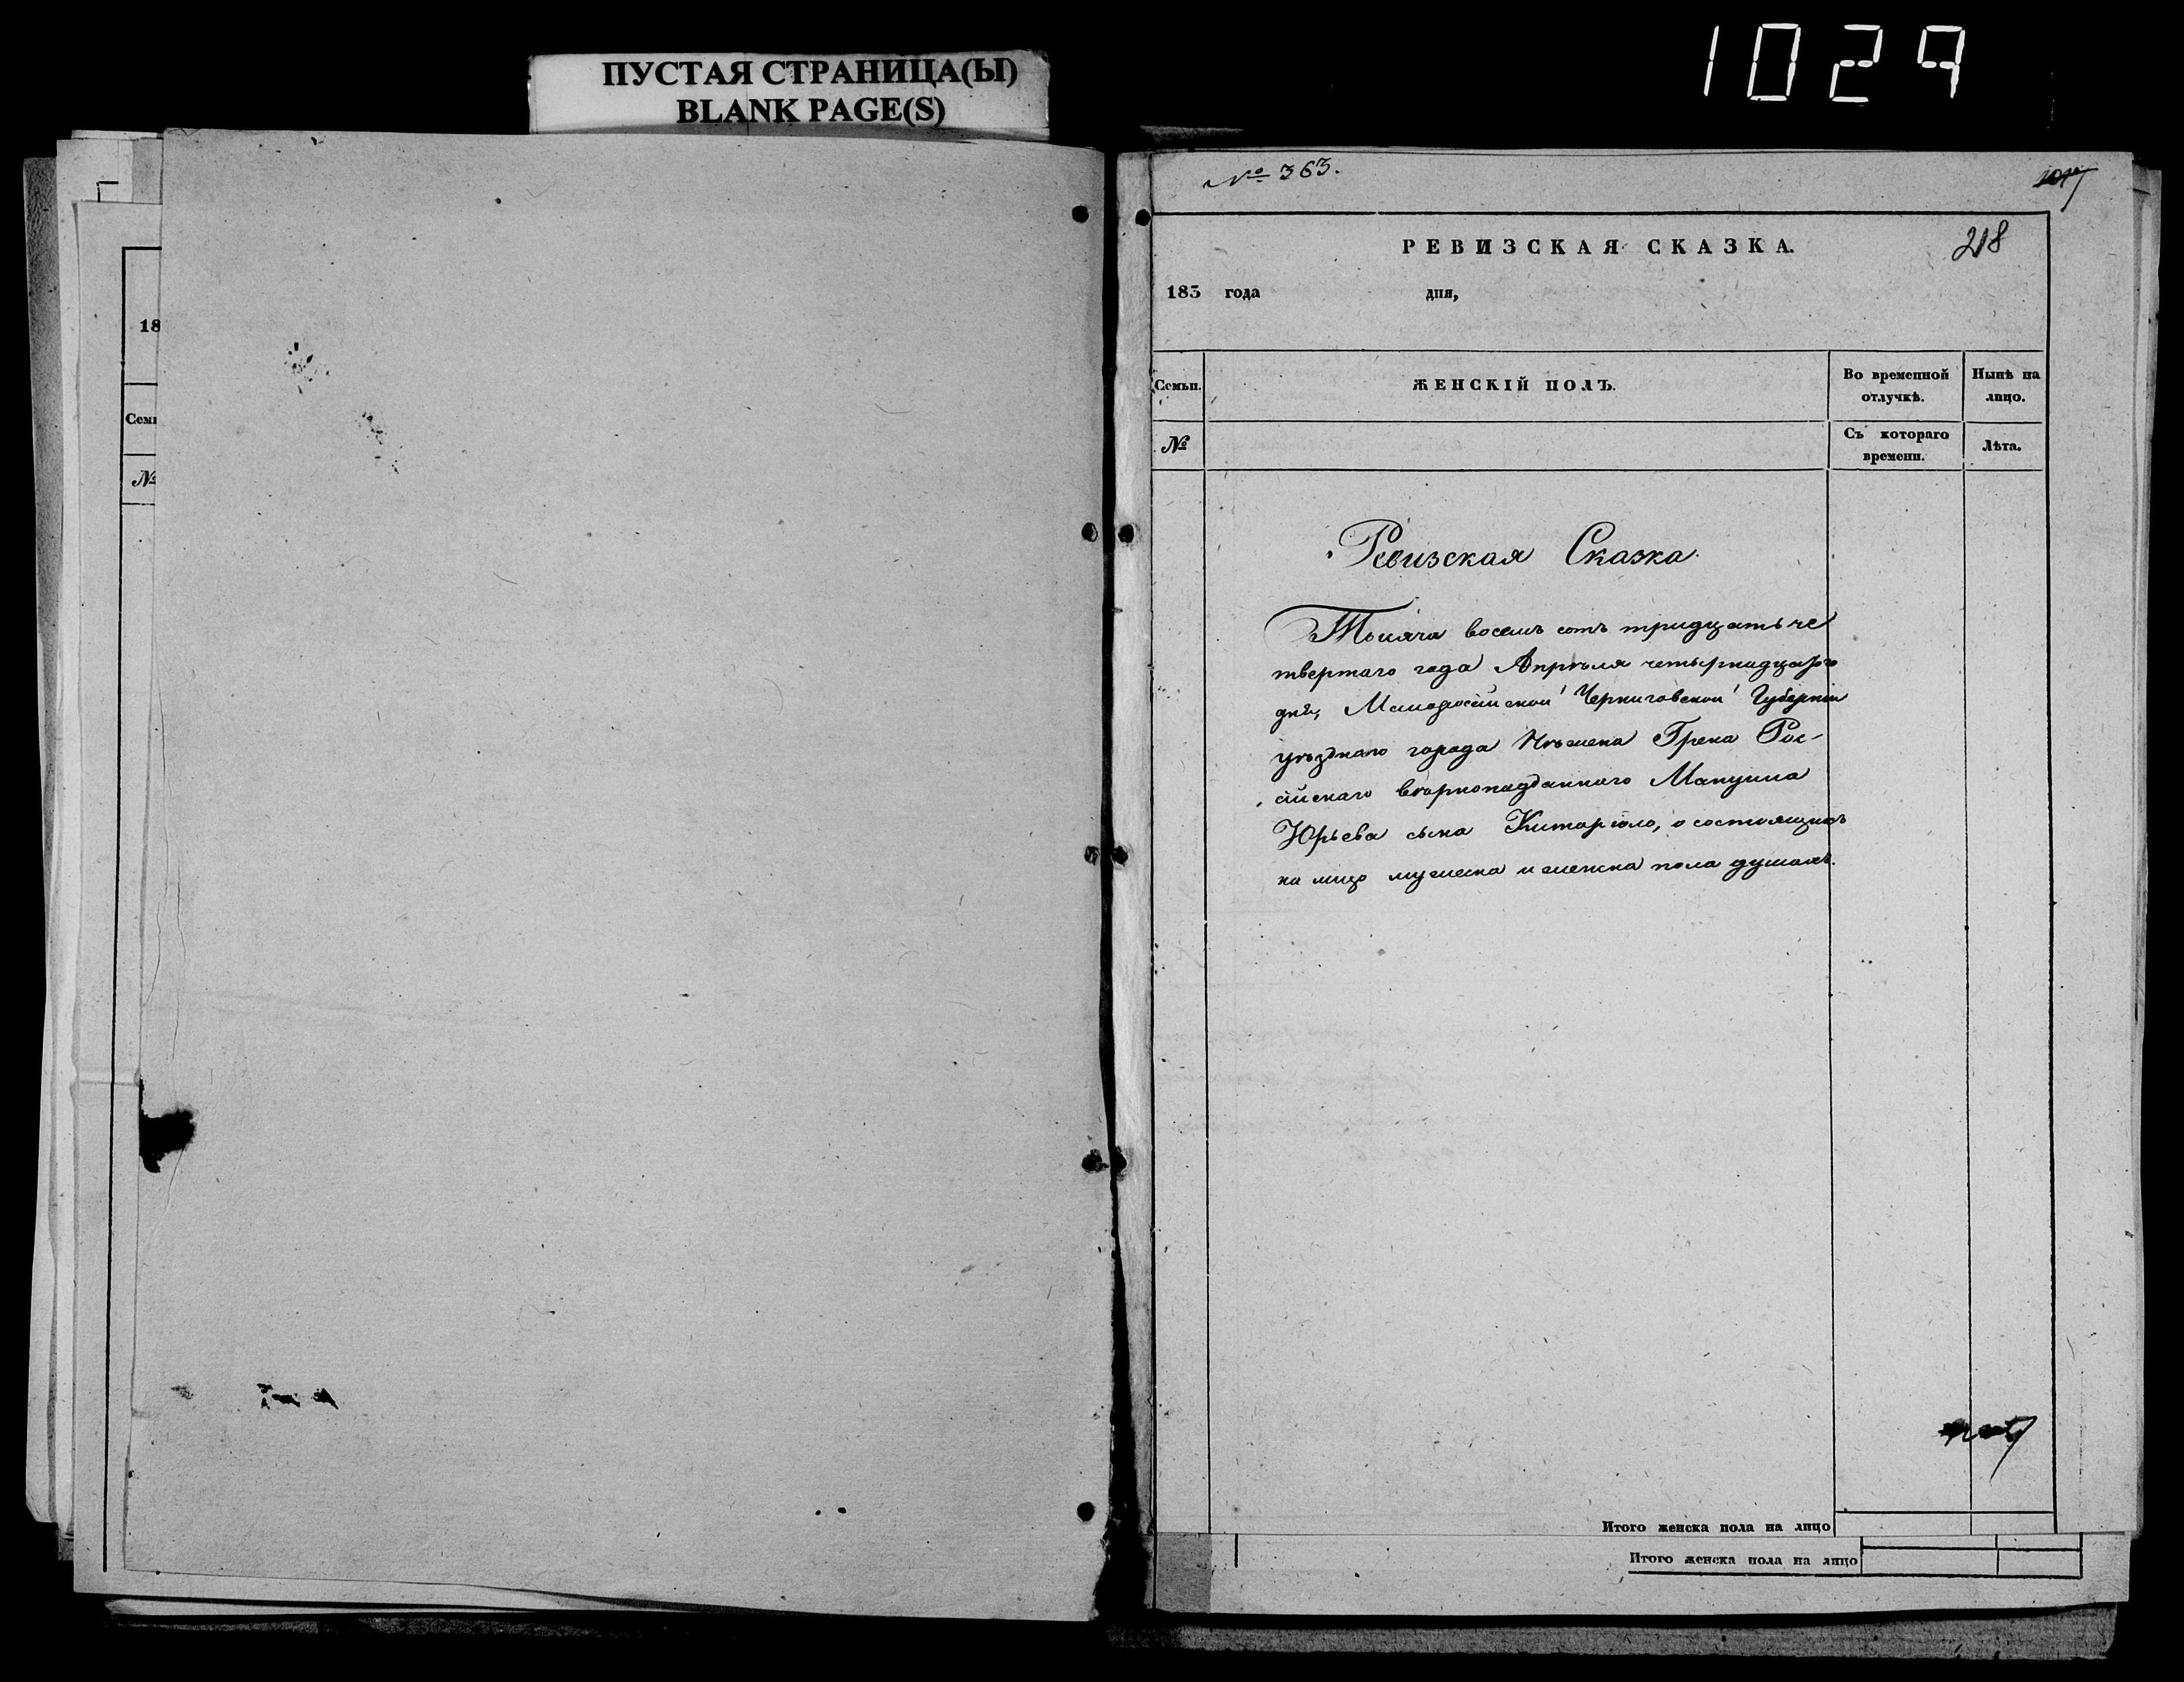 1029
ПУСТАЯ СТРАНИЦА(Ы)
BLANK PAGE(S)
18
Семь
№
№ 363.
218
РЕВИЗСКАЯ СКАЗКА.
183 года дня,
Семьи. ЖЕНСКІЙ ПОЛЪ. Во временной отлучкѣ. Нынѣ на лицо.
№ Съ котораго времени. Лѣта.
Ревизская Сказка.
Тысяча восемь сотъ тридцать че
твертаго года Апрѣля четырнадцатого
дня, Малоросійской Черниговской Губерніи
уѣзднаго города Нѣжена Грека Рос-
сійскаго вѣрноподданного Мануила
Юрьева сына Китаріоло, о состоящихъ
на лицо мужеска и женска пола душахъ.
Итого женска пола на лицо
Итого женска пола на лицо